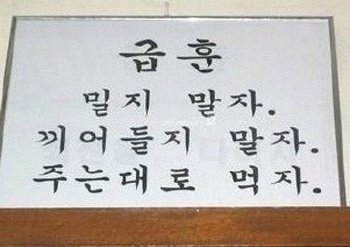 급훈
밀지 말자.
끼어들지 말자.
주는대로 먹자.